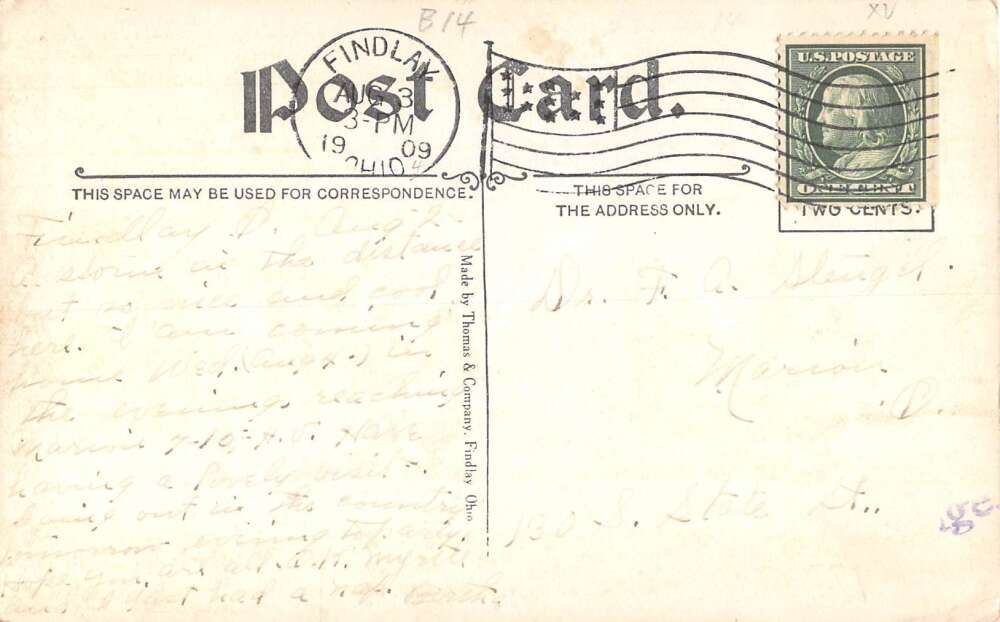 B14
XV
Post Card.
FINDLAY
AUG 3
3-PM
1909
OHIO
U.S. POSTAGE
ONE CENT
TWO CENTS.
THIS SPACE MAY BE USED FOR CORRESPONDENCE.
THIS SPACE FOR
THE ADDRESS ONLY.
Made by Thomas & Company, Findlay Ohio
Findlay O. Aug
in the distance
but so nice and cool
here. I am coming
home Wed. (Aug 4.) in
the evening, reaching
Marion 7-10
having a lovely visit.
Going out in the country
tomorrow evening to party.
Hope you are all O.K. Myrtle
and I just had a nap. Berth
Dr. F. A.
Marion
O.
130 S. State St.,